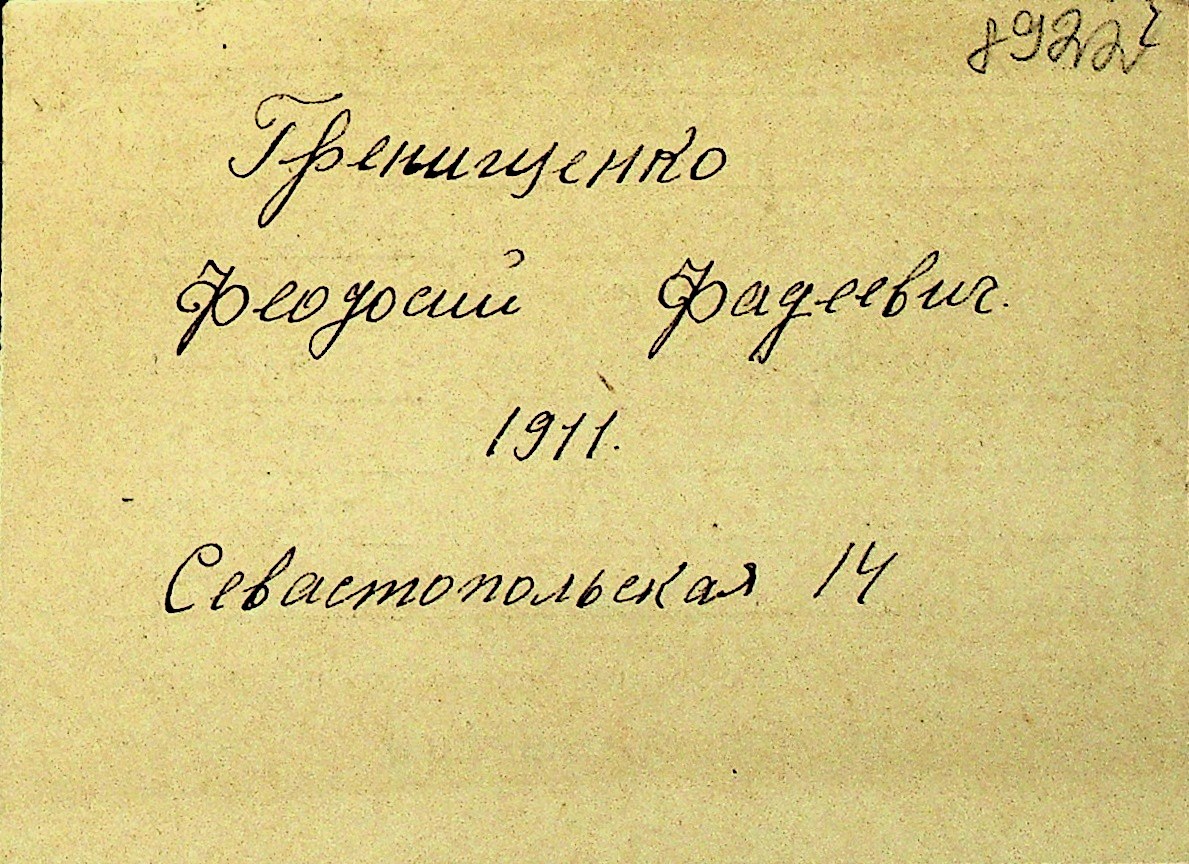 Гренищенко
Феодосий Фадеевич.
1911.
Севастопольская 14